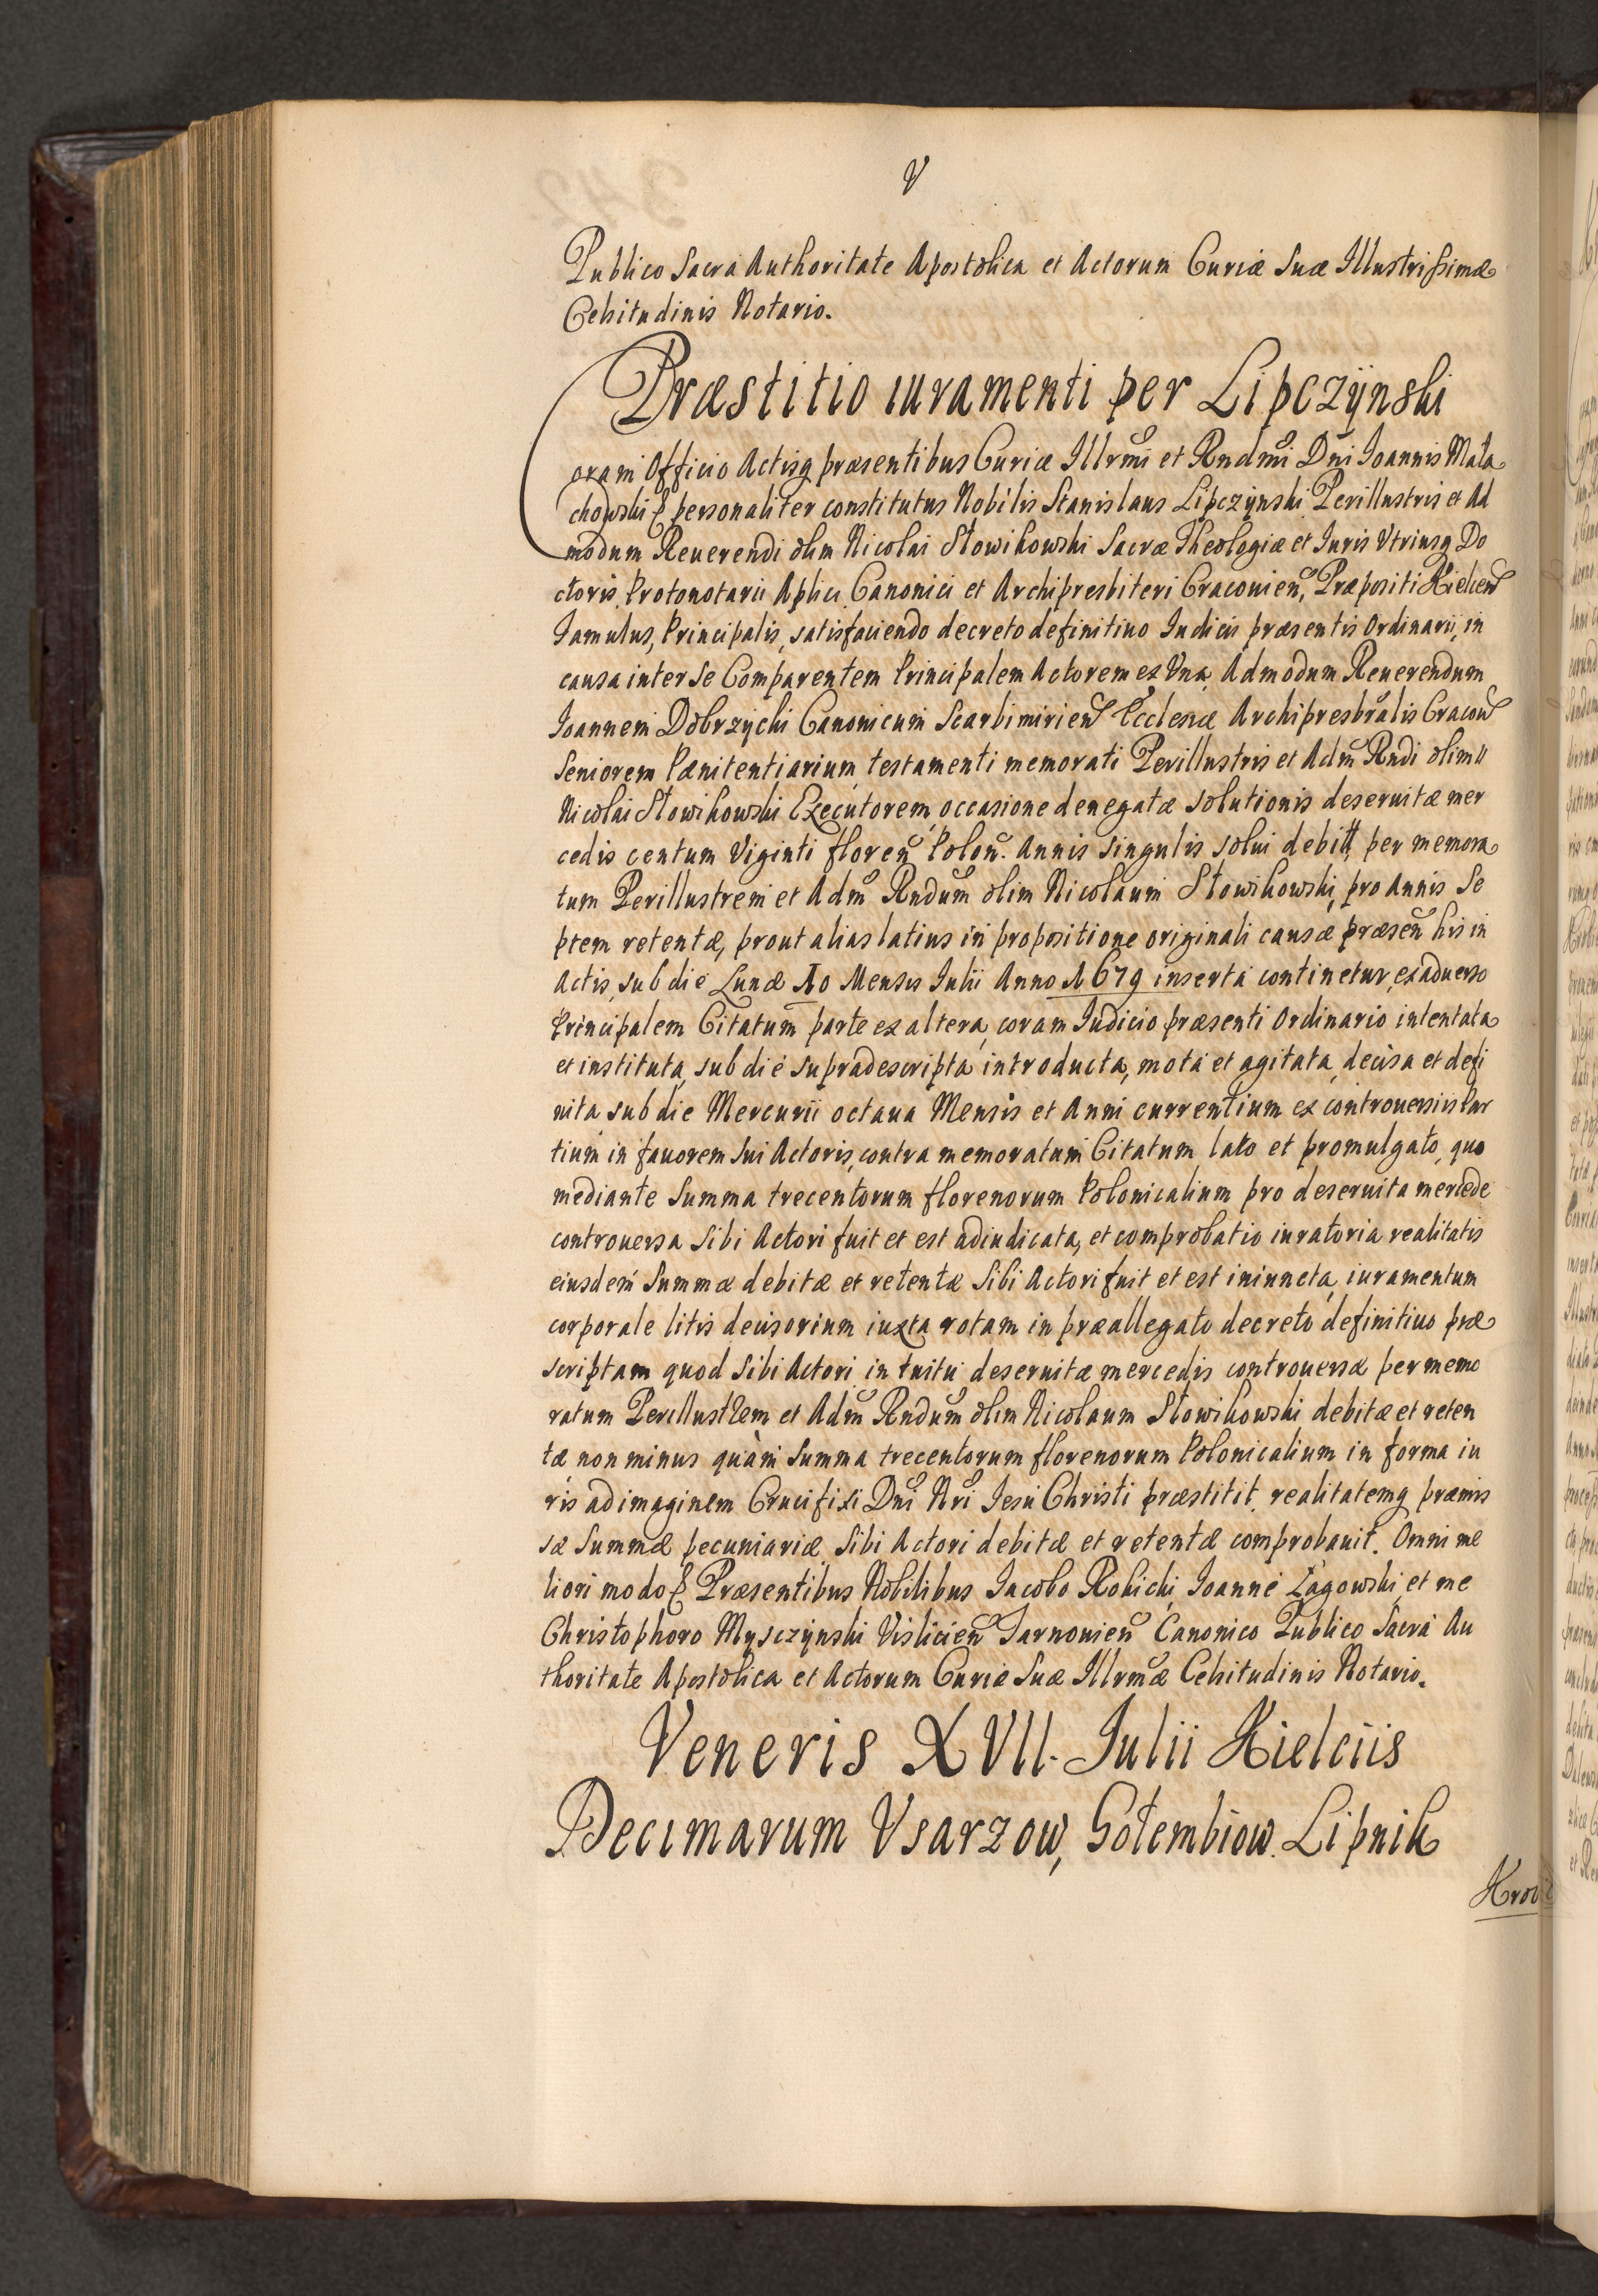 V
Publico Sacra Authoritate Apostolica et Actorum Curiæ Suæ Illustrissimæ
Celsitudinis Notario.
Præstitio iuramenti per Lipczÿnski
Coram Officio Actisq præsentibus Curiæ Illrmi et Rndmi Dni Ioannis Mała
chowski personaliter constitutus Nobilis Stanislaus Lipczÿnski Perillustris et Ad
modum Reuerendi olim Nicolai Słowikowski Sacræ Theologiæ et Iuris Vtriusq Do
ctoris, Protonotarii Aplici Canonici et Archipresbiteri Cracouien, Præpositi Kielcen
Famulus, Principalis, satisfaciendo decreto definitiuo Iudicii præsentis Ordinarii, in
causa inter Se Comparentem Principalem Actorem ex Vna, Admodum Reuerendum
Ioannem Dobrzÿcki Canonicum Scarbimirien Ecclesiæ Archipresbralis Cracou
Seniorem Pænitentiarium, testamenti memorati Perillustris et Adm Rndi olim
Nicolai Słowikowski Executorem, occasione denegatæ solutionis deseruitæ mer
cedis centum Viginti floren Polon. Annis singulis solui debitt, per memora
tum Perillustrem et Adm Rndum olim Nicolaum Słowikowski, pro Annis Se
ptem retentæ, prout alias latius in propositione originali causæ præsen his in
Actis, sub die Lunæ 10 Mensis Iulii Anno 1679 inserta continetur, ex aduerso
Principalem Citatum parte ex altera, coram Iudicio præsenti Ordinario intentata
et instituta, sub die supradescripta introducta, mota et agitata, decisa et defi
nita sub die Mercurii octaua Mensis et Anni currentium ex controuersiis Par
tium in fauorem sui Actoris, contra memoratum Citatum lato et promulgato, quo
mediante Summa trecentorum florenorum Polonicalium pro deseruita mercede
controuersa Sibi Actori fuit et est adiudicata, et comprobatio iuratoria realitatis
eiusdem Summæ debitæ et retentæ Sibi Actori fuit et est iniuncta, iuramentum
corporale litis decisorium iuxta rotam in præallegato decreto definitiuo præ
scriptam quod Sibi Actori in tuitu deseruitæ mercedis controuersæ per memo
ratum Perillustrem et Adm Rndum olim Nicolaum Słowikowski debitæ et reten
tæ non minus quàm Summa trecentorum florenorum Polonicalium in forma iu
ris ad imaginem Crucifixi Dni Nri Iesu Christi præstitit, realitatemq præmis
sæ Summæ pecuniariæ Sibi Actori debitæ et retentæ comprobauit. Omni me
liori modo Præsentibus Nobilibus Iacobo Rokicki, Ioanne Łagowski, et me
Christophoro Mysczÿnski Vislicien Tarnouien Canonico Publico Sacra Au
thoritate Apostolica et Actorum Curiæ Suæ Illrmæ Celsitudinis Notario.
Veneris XVII. Iulii Kielciis
Decimarum Vsarzow, Gołembiow. Lipnik